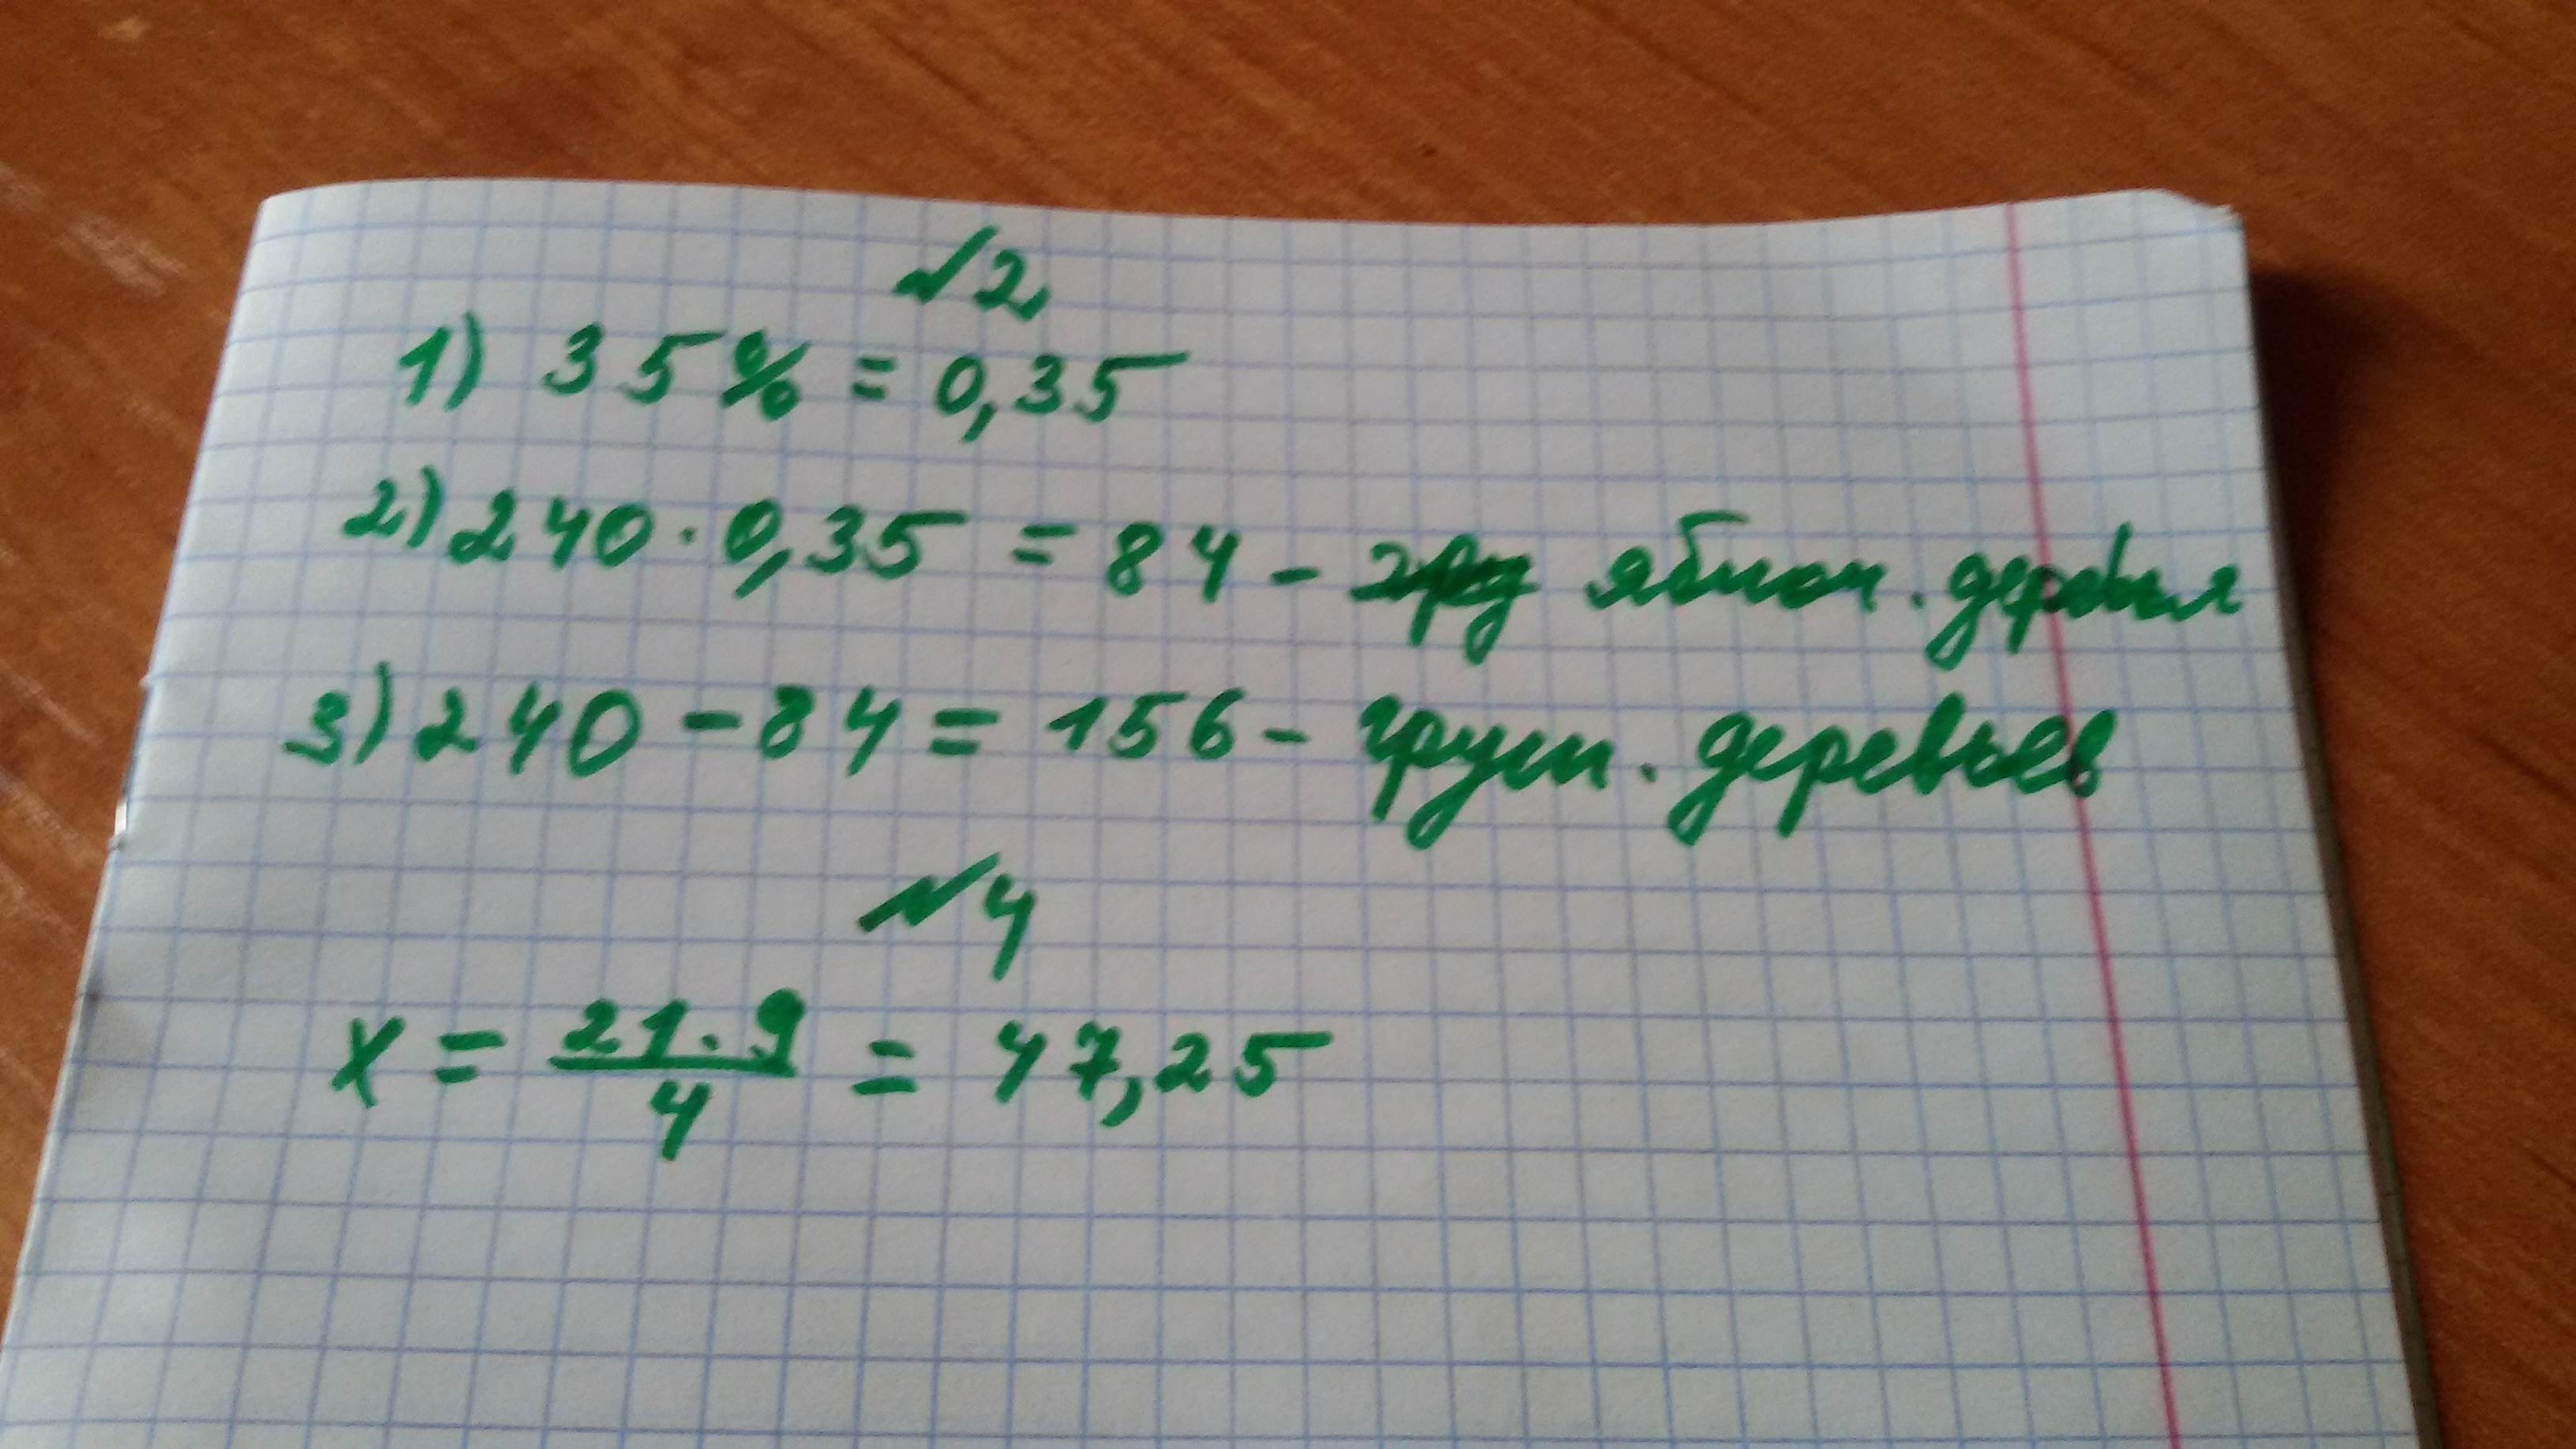 №2
1) 35% = 0,35
2) 240 · 0,35 = 84 - яблон. деревья
3) 240 - 84 = 156 - груш. деревьев
№4
x = 21·9/4 = 47,25